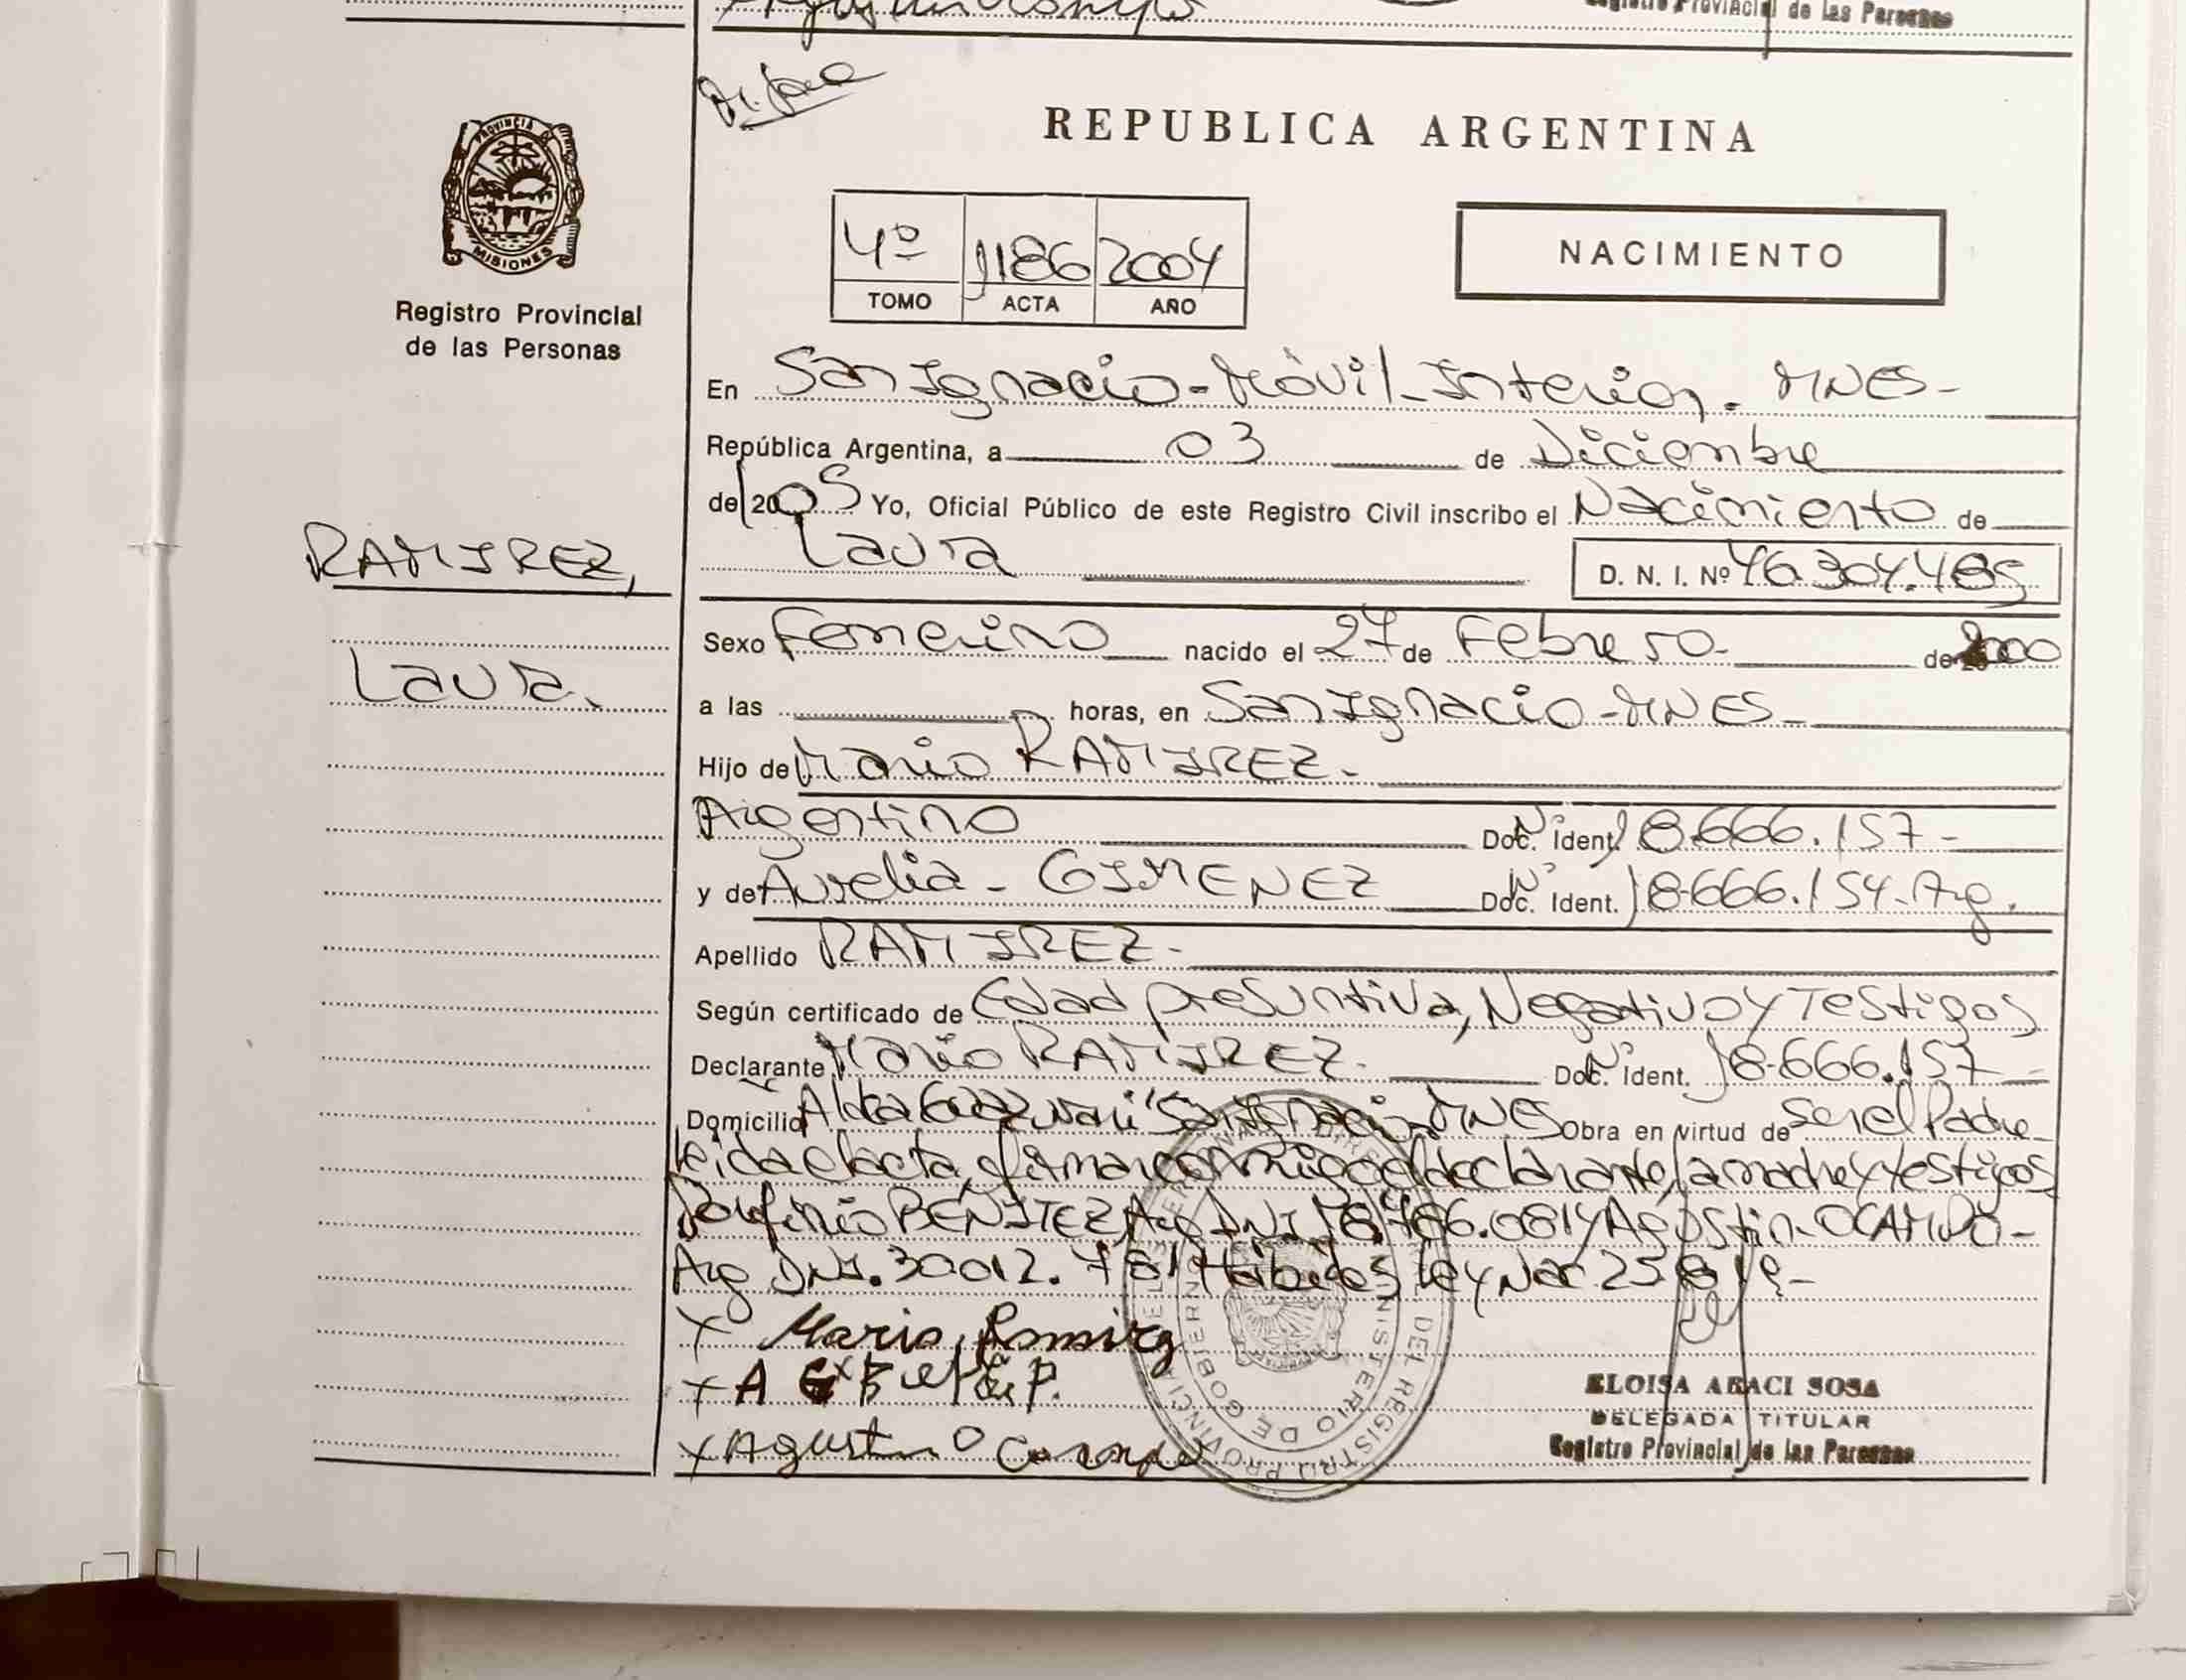 Registro Provincial de las Personas
REPUBLICA ARGENTINA
PROVINCIA DE
MISIONES
Registro Provincial
de las Personas
4º 1186 2004
TOMO ACTA AÑO
NACIMIENTO
En San Ignacio - Móvil - Interior. MNES-
República Argentina, a 03 de Diciembre
de 2005 Yo, Oficial Público de este Registro Civil inscribo el Nacimiento de
Laura D. N. I. Nº 46.304.485
RAMIREZ,
Laura.
Sexo Femenino nacido el 27 de Febrero - de 2000
a las horas, en San Ignacio - MNES -
Hijo de Mario RAMIREZ.
Argentino Doc. Nº ident. 18.666.157-
y de Aurelia - GIMENEZ Doc. Nº Ident. 18.666.154-Arg.
Apellido RAMIREZ-
Según certificado de Edad presuntiva, Negativo y Testigos
Declarante Mario RAMIREZ. Doc. Nº Ident. 18.666.157-
Domicilio Aldea San Ignacio MNES Obra en virtud de ser el Padre
leida el acta, firman conmigo el declarante, la madre y testigos
Porfirio BENITEZ, Arg DNI y Agustin - OCAMPO -
Arg DNI. 30012.781 Habiles Ley Nac 25819-
x Mario Ramirez
x A G
x Agustin Ocampo
DEL REGISTRO PROVINCIAL DE LAS
MINISTERIO DE GOBIERNO
ELOISA ARACI SOSA
DELEGADA TITULAR
Registro Provincial de las Personas